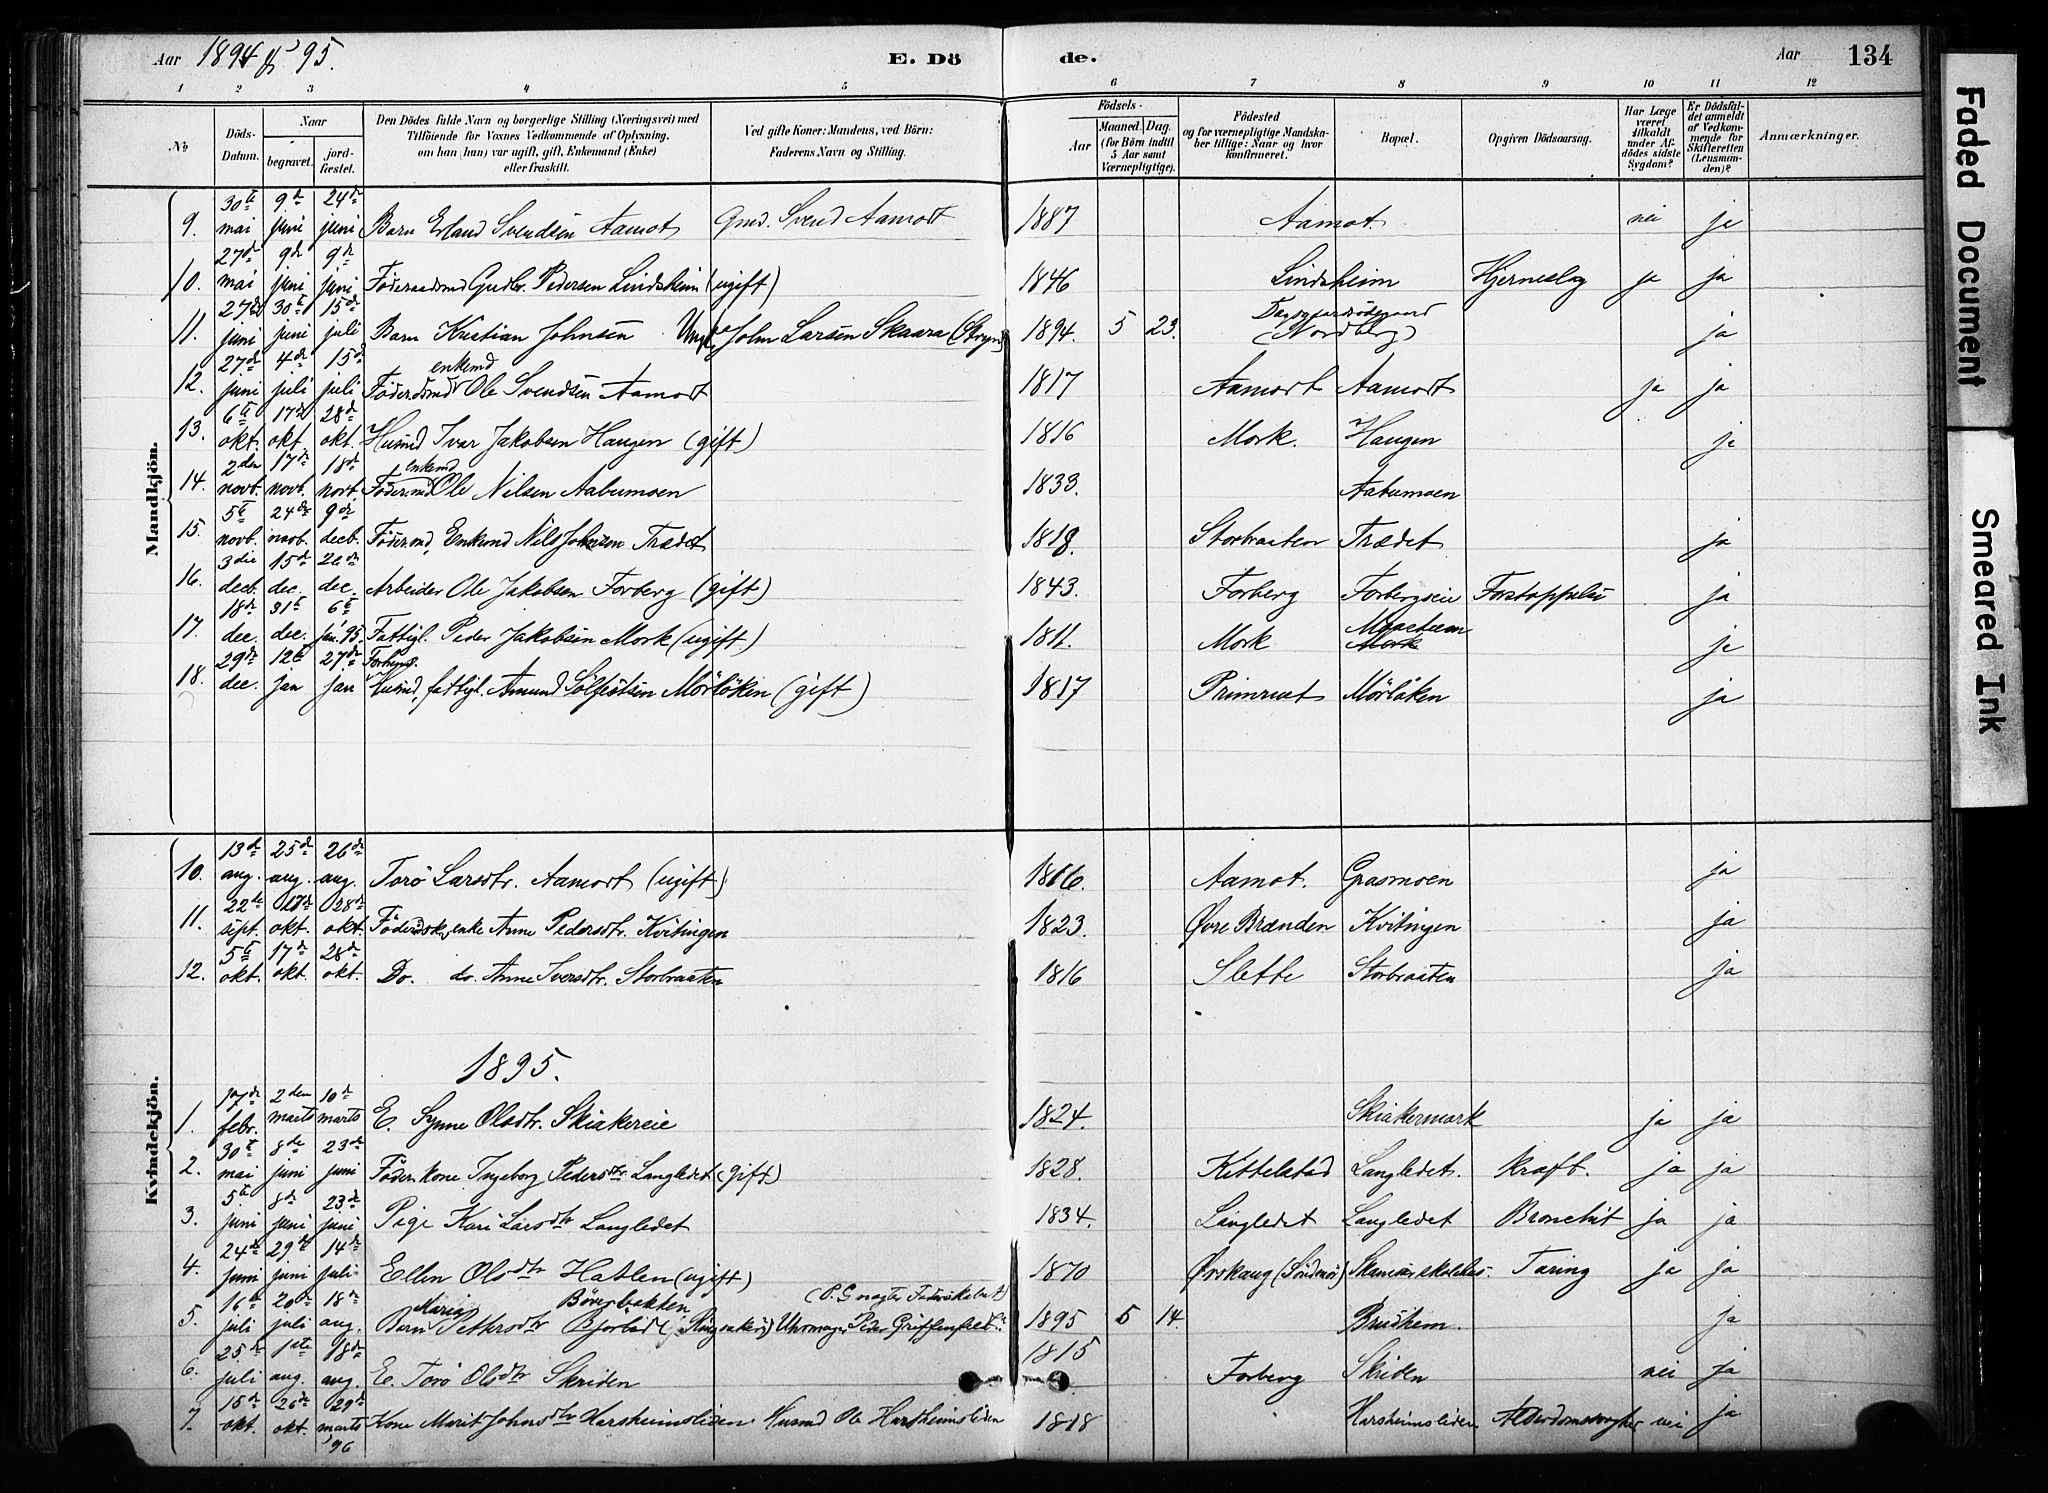 Aar 1894 & 95.
E. Dö de.
Aar 134
1 2 3 4 5 6 7 8 9 10 11 12
No
Döds-Datum.
Naar
begravet.
jord-fæstet.
Den Dödes fulde Navn og borgerlige Stilling (Næringsvei) med Tilföiende for Voxnes Vedkommende af Oplysning, om han (hun) var ugift, gift, Enkemand (Enke) eller fraskilt.
Ved gifte Koner: Mandens, ved Börn: Faderens Navn og Stilling.
Födsels-
Aar
Maaned. Dag.
(for Börn indtil 5 Aar samt Værnepligtige).
Födested og for værnepligtige Mandskaber tillige: Naar og hvor konfirmeret.
Bopæl.
Opgiven Dödsaarsag.
Har Læge været tilkaldt under Afdödes sidste Sygdom?
Er Dödsfaldet anmeldt af Vedkommende for Skifteretten (Lensmanden)?
Anmærkninger.
Mandkjön.
9. 30te mai 9de juni 24de juni Barn Erland Svendsen Aamot Gmd. Svend Aamodt 1887 Aamot. nei ja
10. 27de mai 9de juni 9de juni Föderaadsmd Gudbr. Pedersen Lindsheim (ugift) 1846 Lindsheim Hjerneslag ja ja
11. 27de juni 30te juni 15de juli Barn Kristian Johnsen Ungk. John Larsen Skaara (Stryn) 1894. 5 23. (Nordberg) ja
12. 27de juni 4de juli 15de juli Föderdsmd enkemd Ole Svendsen Aamodt 1817 Aamodt Aamodt ja ja
13. 6te okt. 17de okt. 28de okt. Husmd Ivar Jakobsen Haugen (gift) 1816 Mork. Haugen ja
14. 2den novb. 17de novb. 18de novb. Föder.md enkemd Ole Nilsen Aabumoen 1833. Aabumoen
15. 5te novb. 24de novb. 9de decb. Föder.md, Enkemd Nils Johnsen Trædet 1818. Storbraaten Trædet ja
16. 3die decb. 15de dec. 26de dec. Arbeider Ole Jakobsen Forberg (gift) 1843. Forberg Forbergseie Forstoppelse ja
17. 18de dec. 31te dec. 6te jan. 95. Fattigl. Peder Jakobsen Mork (ugift) 1811. Mork Mork ja
18. 29de dec. 12te jan 27de jan Forhens. Husmd, fattigl. Amund Sölfestsen Mörlöken (gift) 1817 Primrud Mörlöken ja
Kvindekjön.
10. 13de aug. 25de aug. 26de aug. Torö Larsdtr. Aamodt (ugift) 1816. Aamot. Grasmoen ja
11. 22de sept. 17de okt. 28de okt. Föderdsk, enke Anne Pedersdtr. Kvitingen 1823. Øvre Brænden Kvitingen ja
12. 5te okt. 17de okt. 28de okt. Do. do. Anne Iversdtr. Storbraaten 1816 Slette Storbraaten ja
1895.
1. 17de febr. 2den marts 10de marts E. Synne Olsdtr. Skiakereie 1824. Skiakermark ja ja
2. 30te mai 8de juni 23de juni Föder.kone Ingeborg Pedersdtr Langledet (gift) 1828. Kittelstad Langledet. kræft. ja ja
3. 5te juni 8de juni 23de juni Pige Kari Larsdtr Langledet 1834. Langledet Langledet Bronchit ja ja
4. 24de juni 29de juni 14de juli Ellen Olsdtr Hatlen (ugift) 1870 Ørskaug (Söndmör) Tæring ja ja
5. 16de juli 20de juli 18de aug. Barn Maria Pettersdtr Uhrmager Peder Griffenfeldt 1895 5 14. Brudhem. ja
6. 25de juli 1ste aug. 18de aug. E. Torö Olsdtr Skriden 1815 Forberg Skriden nei ja
7. 15de okt. 26de okt. 29de marts '96 Kone Marit Johnsdtr Harsheimsliden Husmd Ole Harsheimsliden 1818 Harsheimsliden Alderdomssvaghed nei ja
Faded Document
Smeared Ink